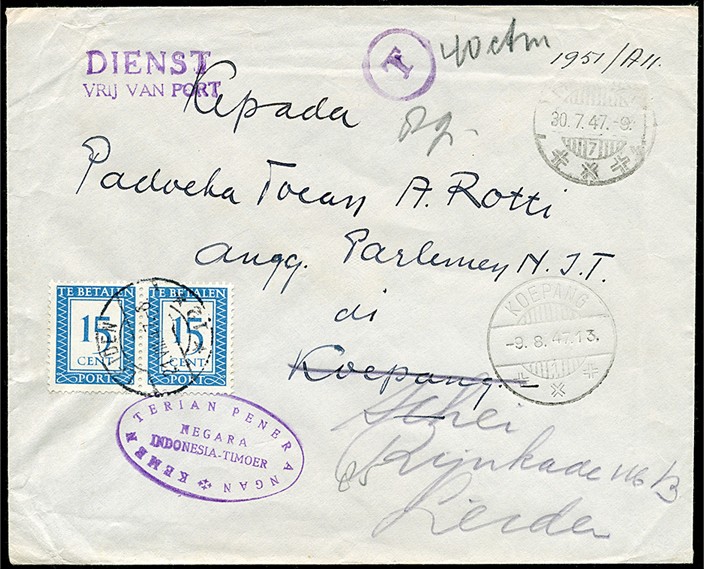 DIENST
VRIJ VAN PORT
T
40 ctm
1951/AII.
Kepada
30.7.47.-9.
7
Padoeka Toean A. Rotti
angg. Parlemen N.I.T.
di
Koepang.
KOEPANG
-9.8.47.13.
1
TE BETALEN
15
CENT
PORT
TE BETALEN
15
CENT
PORT
KEMENTERIAN PENERANGAN
NEGARA
INDONESIA-TIMOER
Rijnkade
Leiden